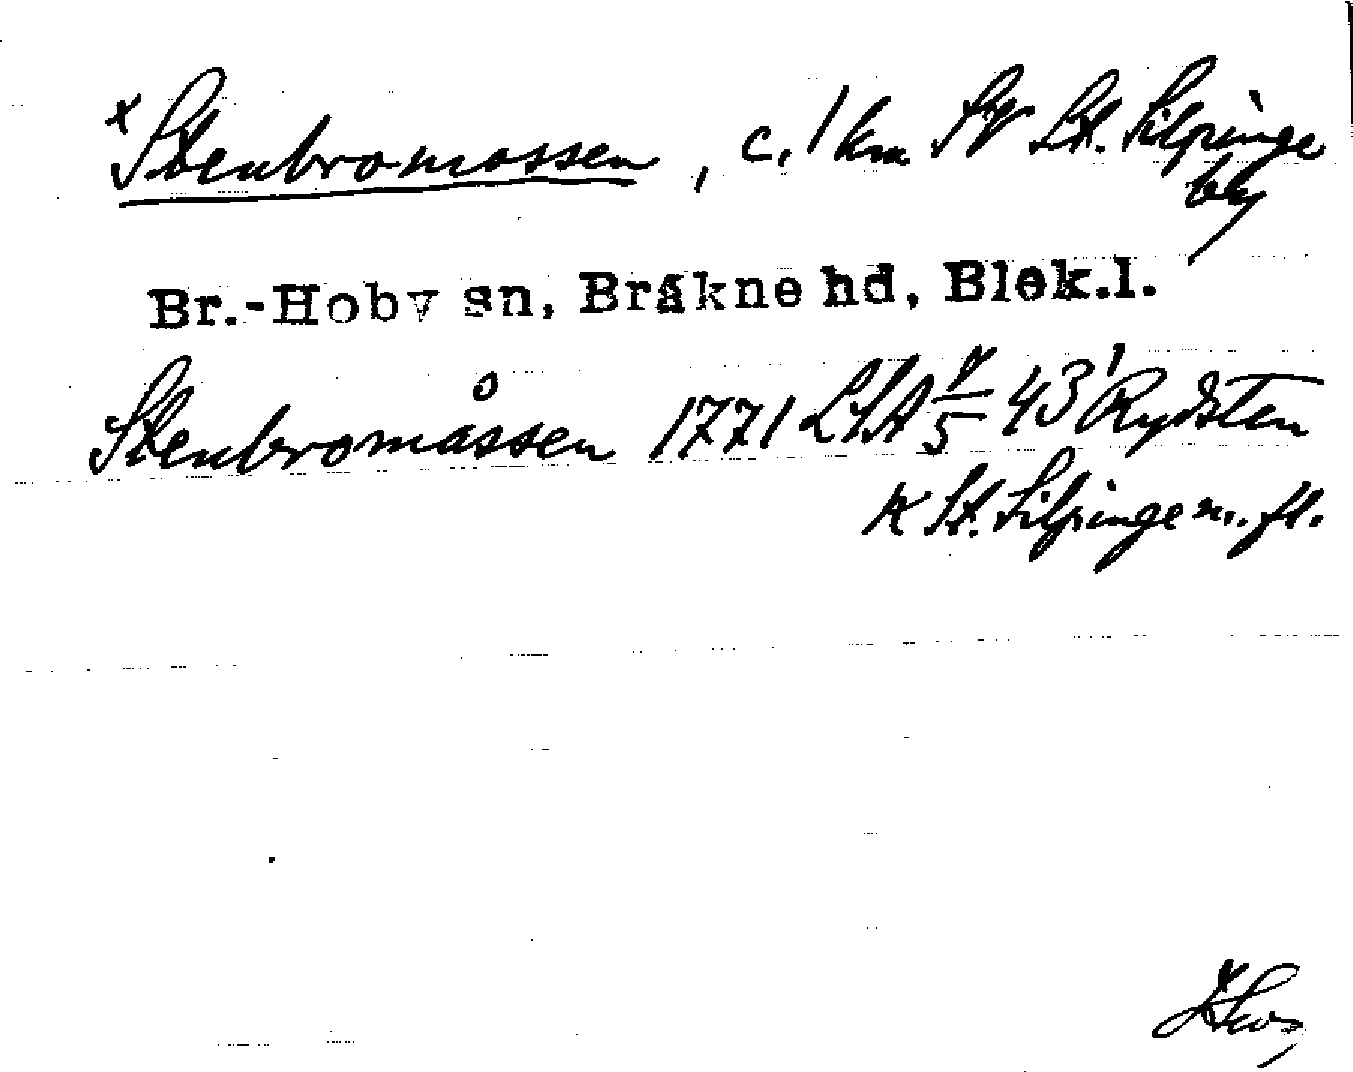 x Stenbromossen, c. 1 km SV St. Silpinge
by
Br.-Hoby sn, Bräkne hd, Blek.l.
Stenbromåssen 1771 LSA 4/5 43¹ Rydsten
K St. Silpinge m.fl.